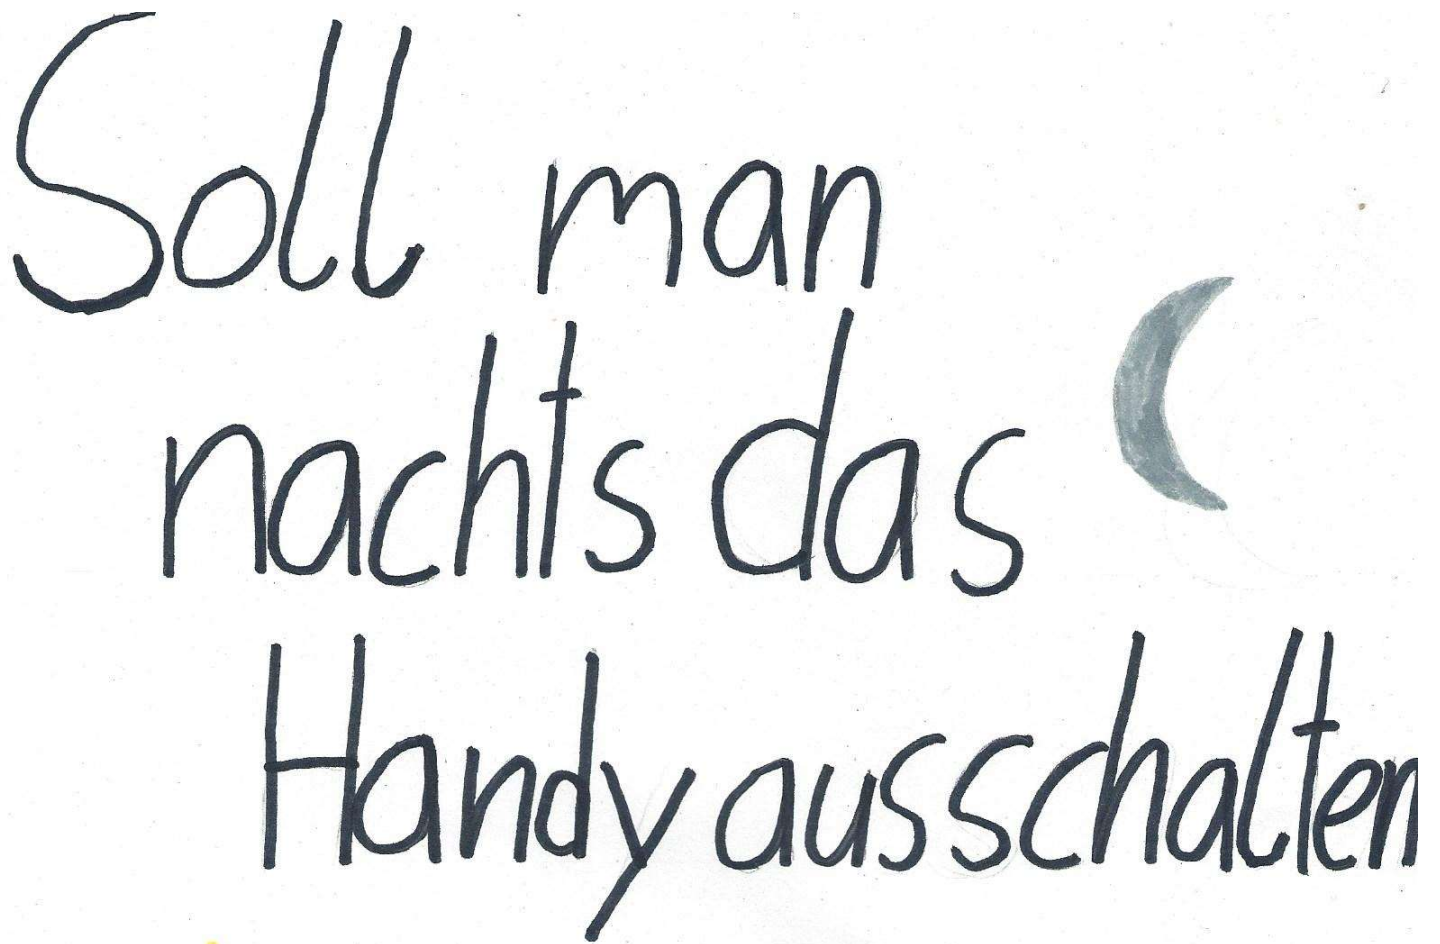 Soll man
nachts das
Handy ausschalten